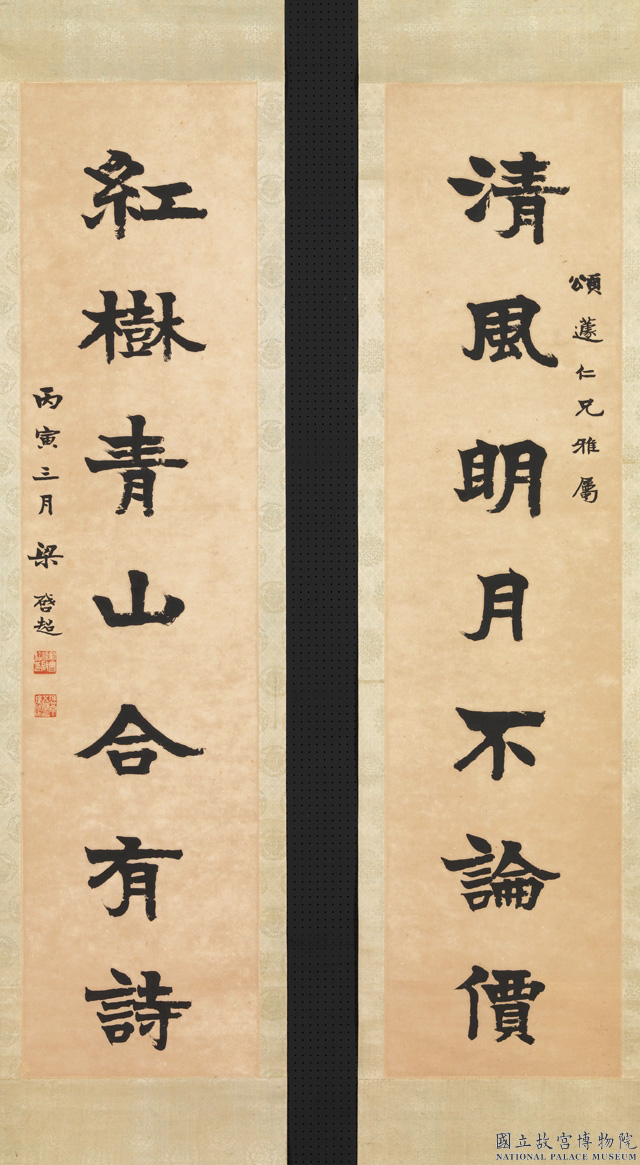 頌蘧仁兄雅屬
清風明月不論價
紅樹青山合有詩
丙寅三月梁啓超
國立故宮博物院
NATIONAL PALACE MUSEUM